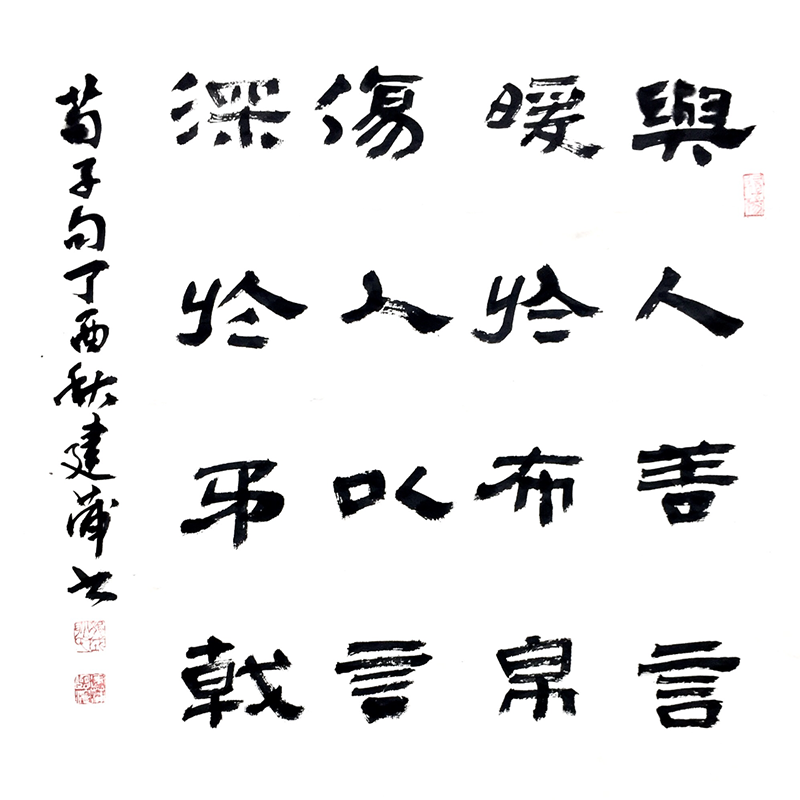 與人善言
暖於布帛
傷人以言
深於矛戟
荀子句丁酉秋建蒲书